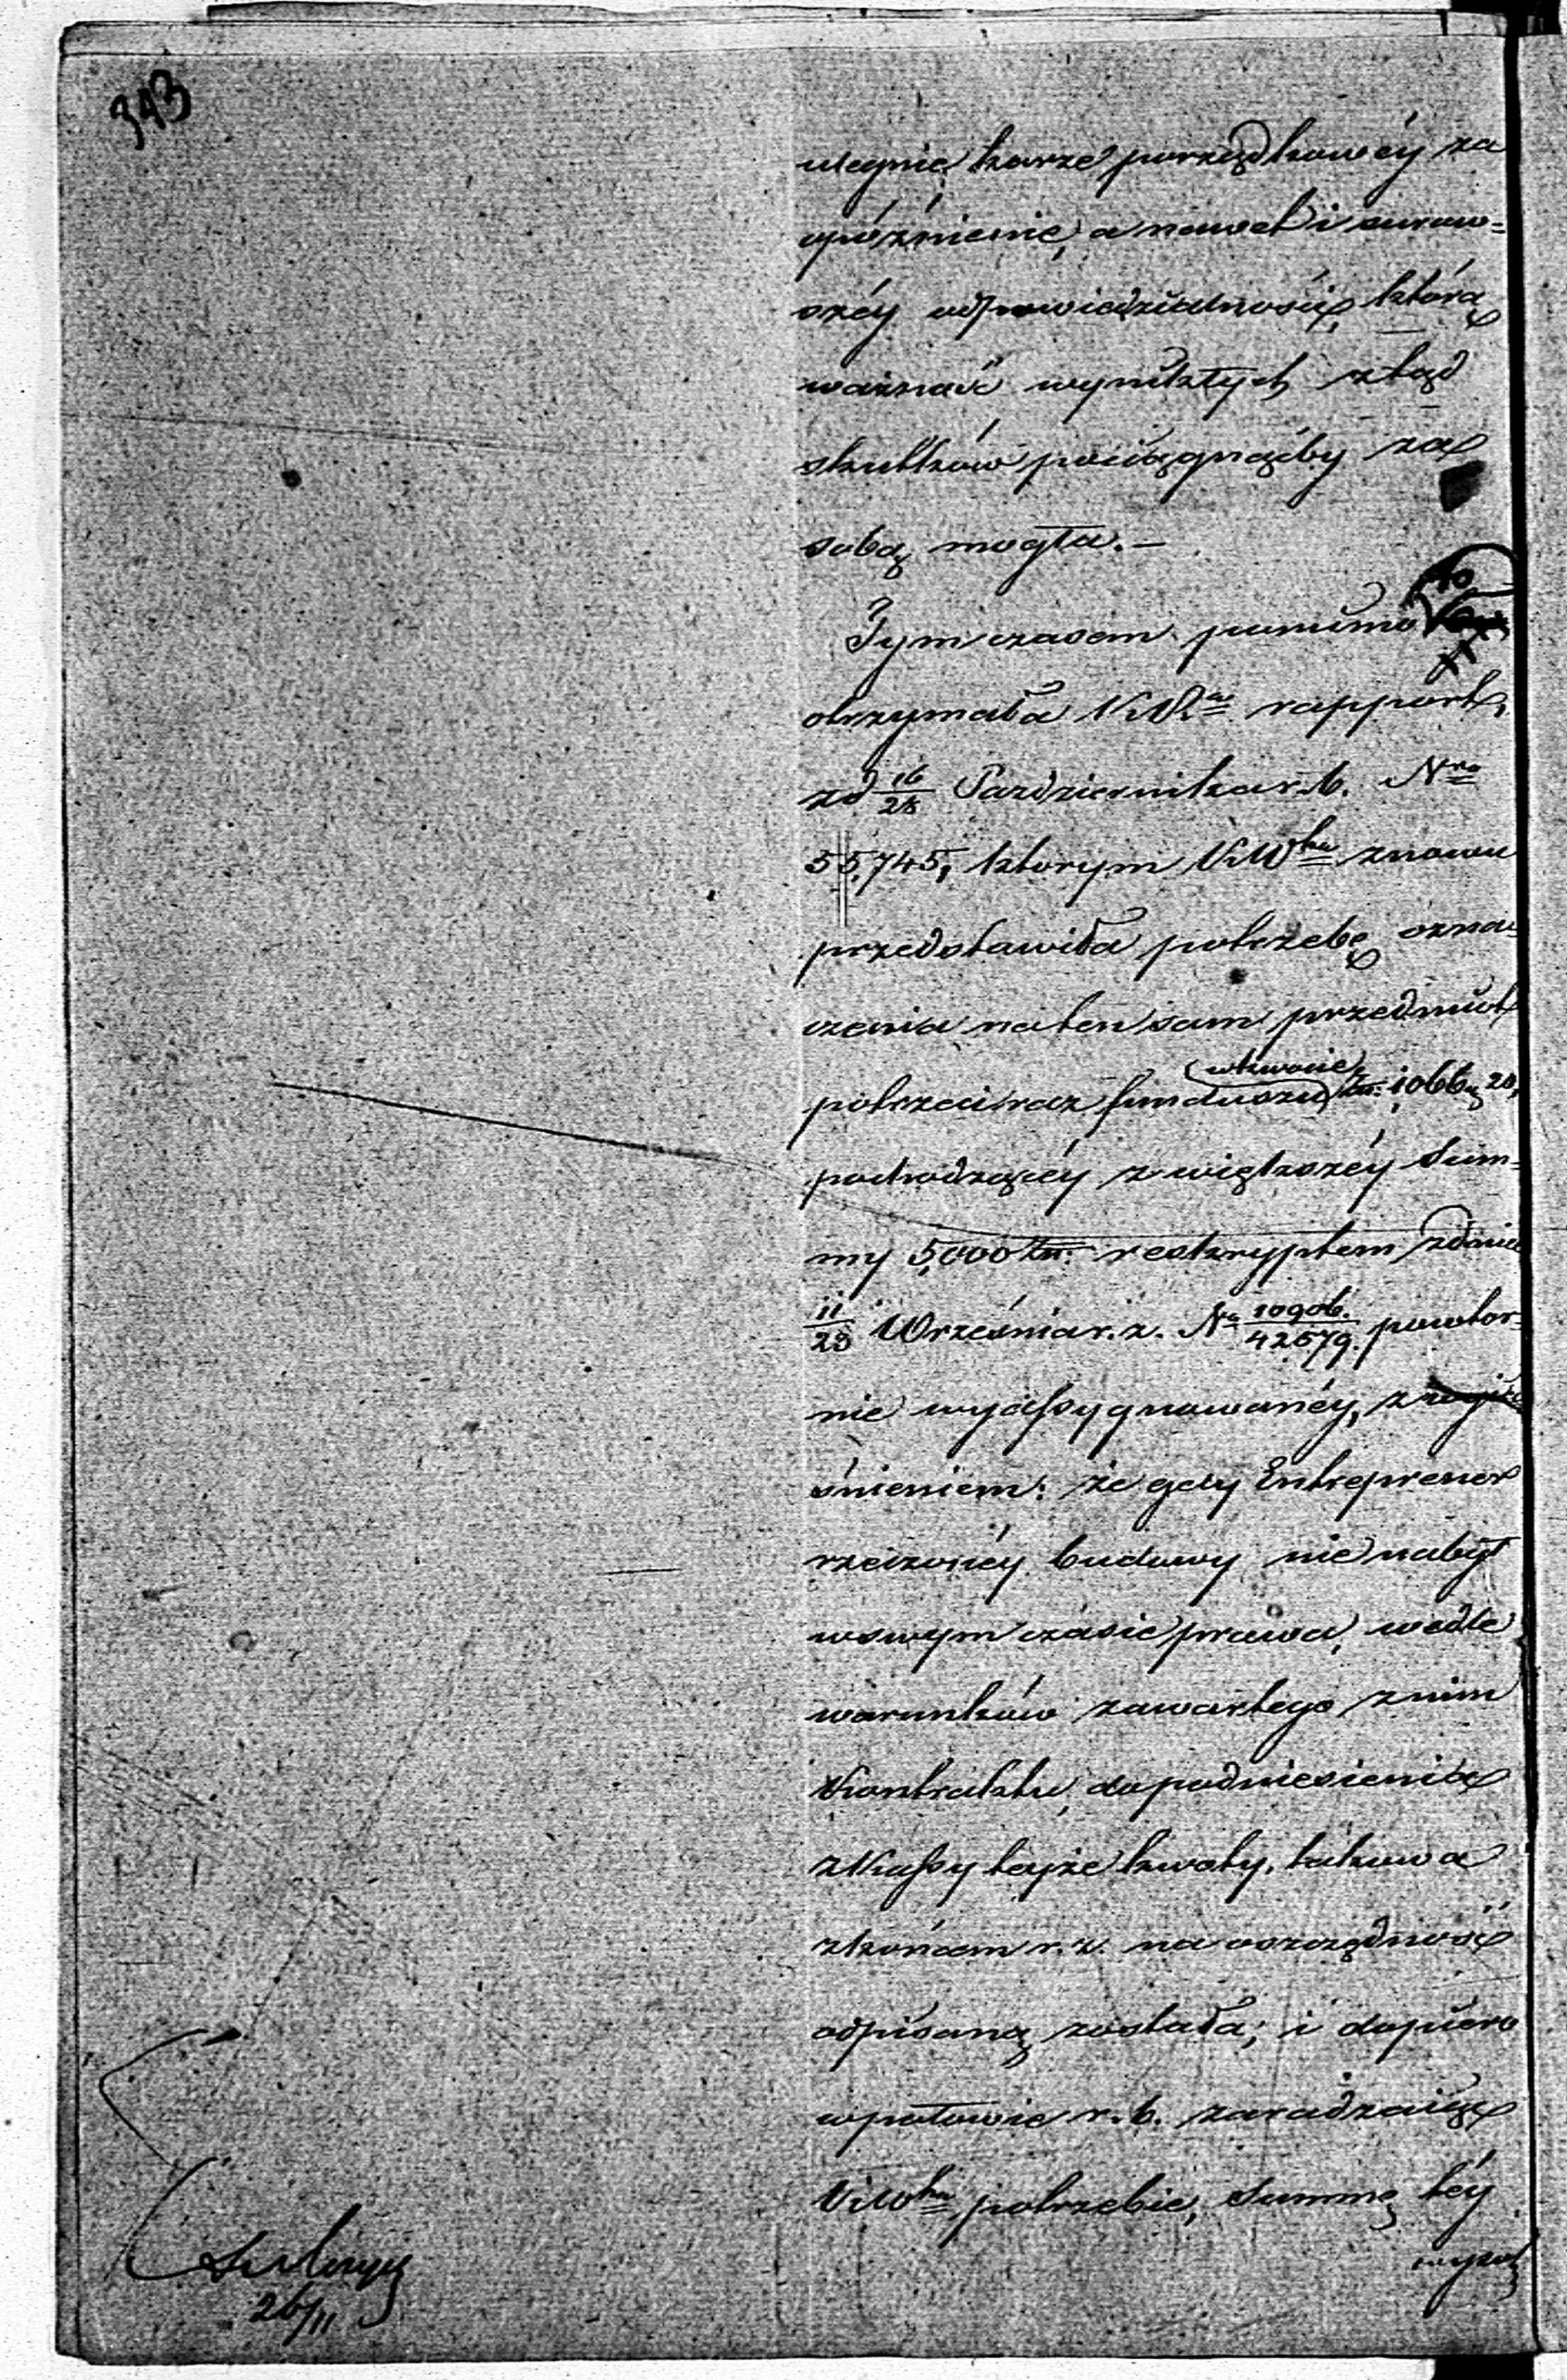 343
ulegnie karze porządkowéy za
opóźnienie, a nawet i surow=
széy odpowiedzialności, którą
ważność wynikłych ztąd
skutków pociągnąćby za
sobą mogła. –
Tymczasem pomimo to
otrzymała K. R. rapport,
zd 16/28 Pazdziernika r. b. Nro
55,745, ktorym K. Wka znowu
przedstawiła potrzebę ozna=
czenia na ten sam przedmiot
wkwocie
potrzeci raz funduszu zł: 1066 g 20,
pochodzącéy z większéy Sum=
my 5,000 zł: reskryptem zdnia
11/23 Września r. z. No 10906/42579. powtor=
nie wyassygnowanéy, z
śnieniem: że gdy Entreprener
rzeczonéy budowy nie nabył
wswym czasie prawa, wedle
warunków zawartego znim
Kontraktu, do podniesienia
z Kassy teyże kwoty, takowa
zkońcem r. z. na oszczędność
odpisaną została; i dopiero
wpołowie r. b. zaradzaiąc
K. Wka potrzebie, Summę téy
26/11